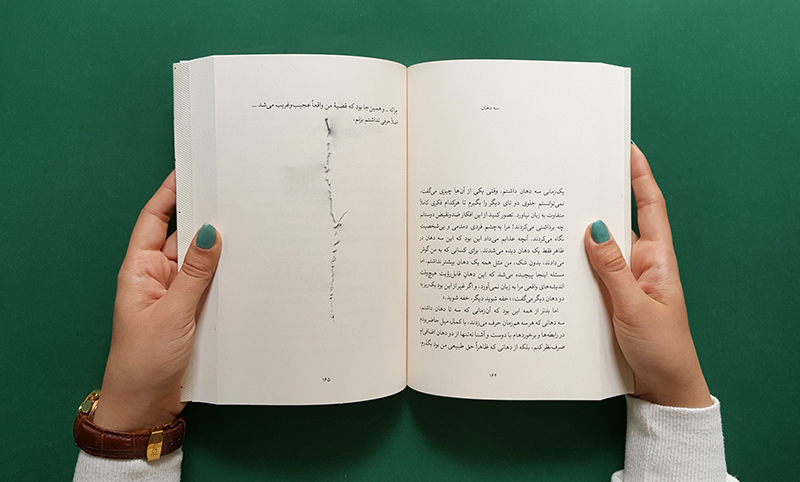 سه دهان
یک‌زمانی سه دهان داشتم. وقتی یکی از آن‌ها چیزی می‌گفت،
نمی‌توانستم جلوی دو تای دیگر را بگیرم تا هرکدام فکری کاملاً
متفاوت به زبان نیاورد. تصور کنید از این افکار ضدونقیض دوستانم
چه برداشتی می‌کردند! مرا به‌چشم فردی دمدمی و بی‌شخصیت
نگاه می‌کردند. آنچه عذابم می‌داد این بود که این سه دهان در
ظاهر فقط یک دهان دیده می‌شدند. برای کسانی که به من گوش
می‌دادند، بدون شک، من مثل همه یک دهان بیشتر نداشتم. اما
مسئله اینجا پیچیده می‌شد که این دهانِ قابل‌رؤیت هیچ‌وقت
اندیشه‌های واقعی مرا به زبان نمی‌آورد، و اگر غیر از این بود یک‌ریز به
دو دهان دیگر می‌گفت: «خفه شوید دیگر، خفه شوید.»
اما بدتر از همه این بود که آن‌زمانی که سه تا دهان داشتم،
سه دهانی که هر سه هم‌زمان حرف می‌زدند، با کمال میل حاضر بودم
در رابطه‌ها و برخوردهام با دوست و آشنا نه‌تنها از دو دهان اضافی‌ام
صرف‌نظر کنم، بلکه از دهانی که ظاهراً حق طبیعی من بود بگذرم
۱۶۴
برای ... و همین‌جا بود که قضیهٔ من واقعاً عجیب‌وغریب می‌شد ...
اصلاً حرفی نداشتم بزنم.
۱۶۵